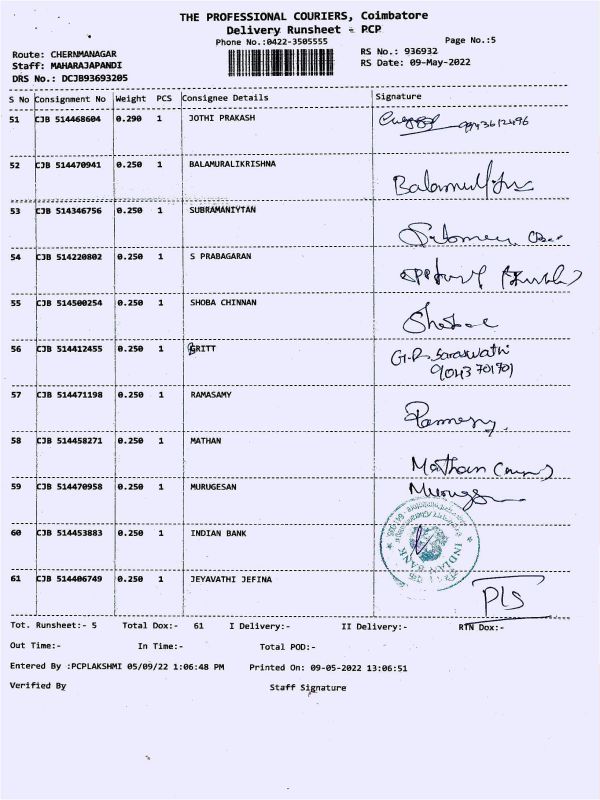 THE PROFESSIONAL COURIERS, Coimbatore
Delivery Runsheet - PCP
Phone No.:0422-3505555
Page No.:5
Route: CHERNMANAGAR
RS No.: 936932
Staff: MAHARAJAPANDI
RS Date: 09-May-2022
DRS No.: DCJB93693205
S No Consignment No Weight PCS Consignee Details Signature
51 CJB 514468604 0.290 1 JOTHI PRAKASH
52 CJB 514470941 0.250 1 BALAMURALIKRISHNA
53 CJB 514346756 0.250 1 SUBRAMANIYTAN
54 CJB 514220802 0.250 1 S PRABAGARAN
55 CJB 514500254 0.250 1 SHOBA CHINNAN
Shobac
56 CJB 514412455 0.250 1 GRITT G.R. Saraswathi
9043 701701
57 CJB 514471198 0.250 1 RAMASAMY
58 CJB 514458271 0.250 1 MATHAN
Mathan
59 CJB 514470958 0.250 1 MURUGESAN
60 CJB 514453883 0.250 1 INDIAN BANK INDIAN BANK
61 CJB 514406749 0.250 1 JEYAVATHI JEFINA
PLS
Tot. Runsheet:- 5 Total Dox:- 61 I Delivery:- II Delivery:- RTN Dox:-
Out Time:- In Time:- Total POD:-
Entered By :PCPLAKSHMI 05/09/22 1:06:48 PM Printed On: 09-05-2022 13:06:51
Verified By Staff Signature